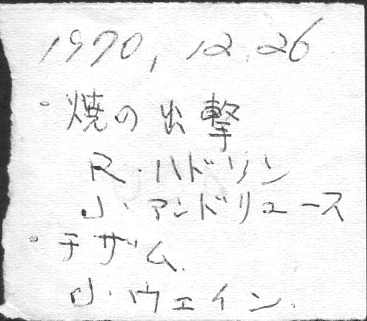 1970, 12. 26
・焼の出撃
R・ハドソン
J・アンドリュース
・チザム
J・ウェイン.